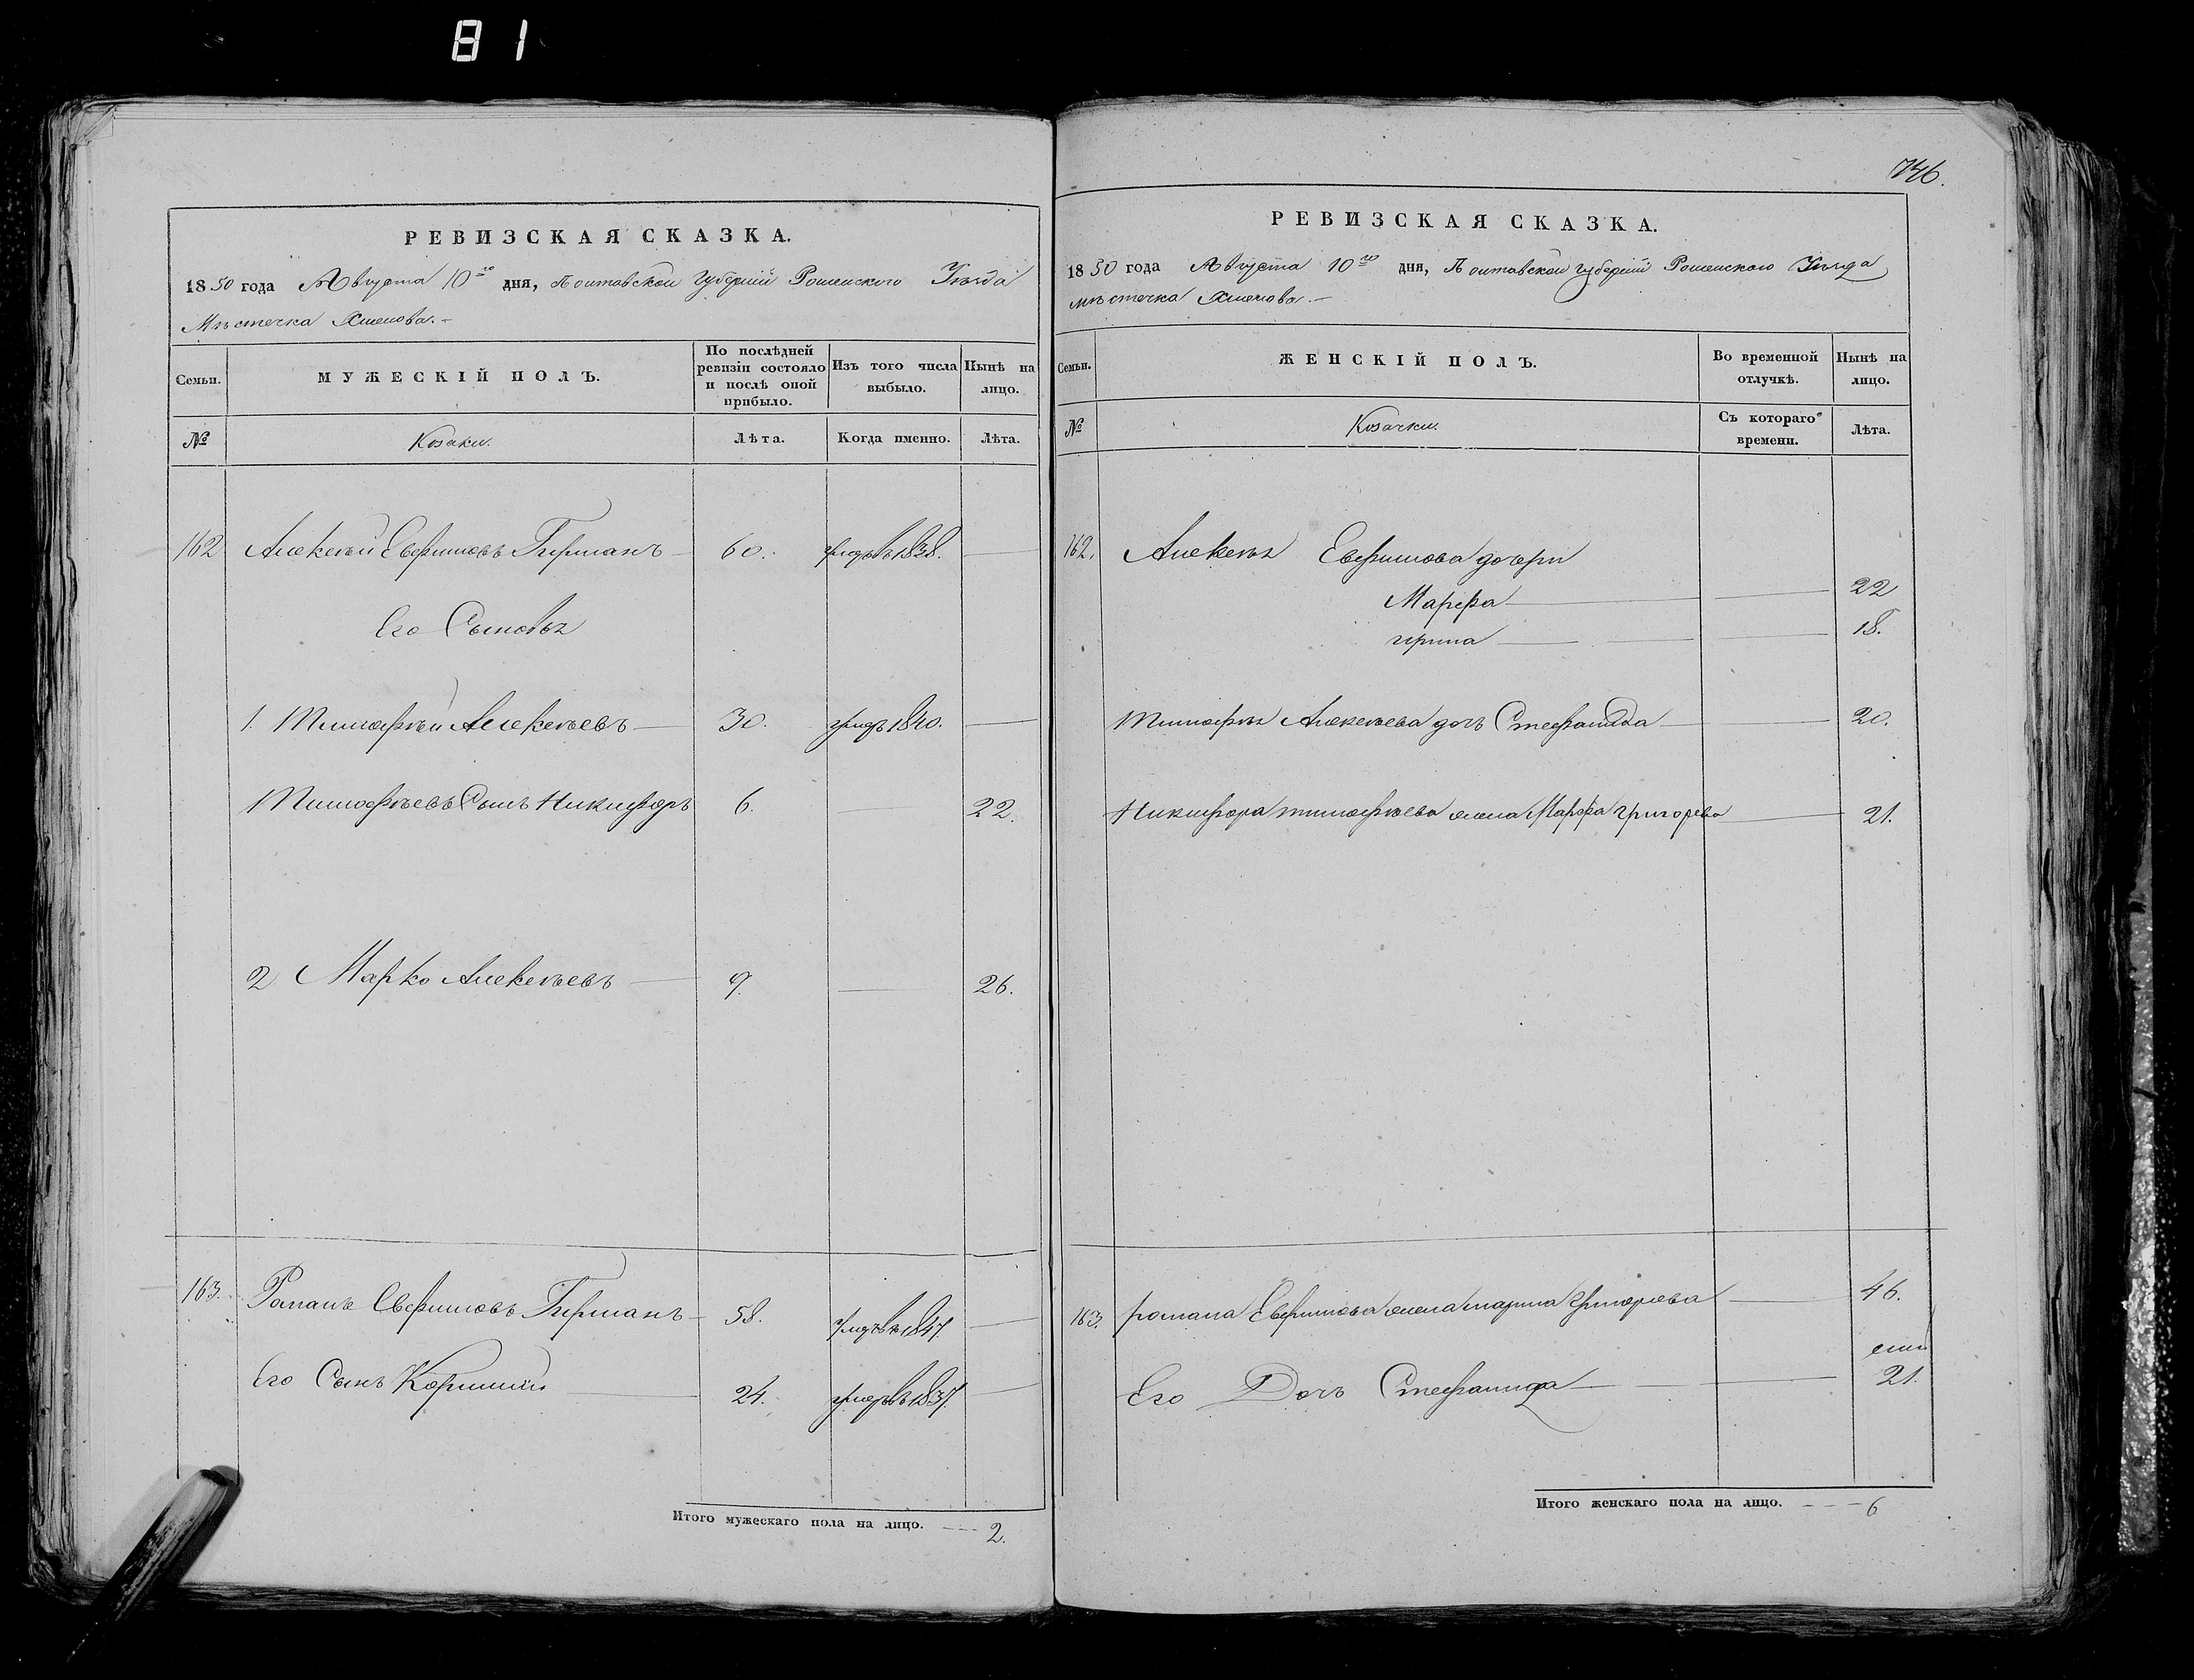 81
746.
РЕВИЗСКАЯ СКАЗКА.
1850 года Августа 10го дня, Полтавской губерніи Роменского Уѣзда
Мѣстечка Хмелова.
Семьи.
МУЖЕСКІЙ ПОЛЪ.
По послѣдней ревизіи состояло и послѣ оной прибыло.
Изъ того числа выбыло.
Нынѣ на лицо.
№
Козаки.
Лѣта.
Когда именно.
Лѣта.
162 Алексѣй Евфимовъ Гирманъ 60. умеръ въ 1838.
Его Сыновья
1. Тимофѣй Алексѣевъ 30. умеръ 1840.
Тимофѣевъ Сынъ Никифоръ 6. 22.
2 Марко Алексѣевъ 9. 26.
163. Романъ Евфимовъ Гирманъ 58. умеръ въ 1847
Его Сынъ 24. умеръ въ 1837.
Итого мужескаго пола на лицо. 2.
РЕВИЗСКАЯ СКАЗКА.
1850 года Августа 10го дня, Полтавской губерніи Роменского Уѣзда
мѣстечка Хмелова.
Семьи.
ЖЕНСКІЙ ПОЛЪ.
Во временной отлучкѣ.
Нынѣ на лицо.
№
Козачки.
Съ котораго времени.
Лѣта.
162. Алексѣя Евфимова дочери
Марфа 22
ирина 18.
Тимофѣя Алексѣева дочь Стефанида 20.
Никифора тимофѣева жена Марфа григорева 21.
163. романа Евфимова жена марина григорева 46.
Его Дочь Стефанида 21.
Итого женскаго пола на лицо. 6